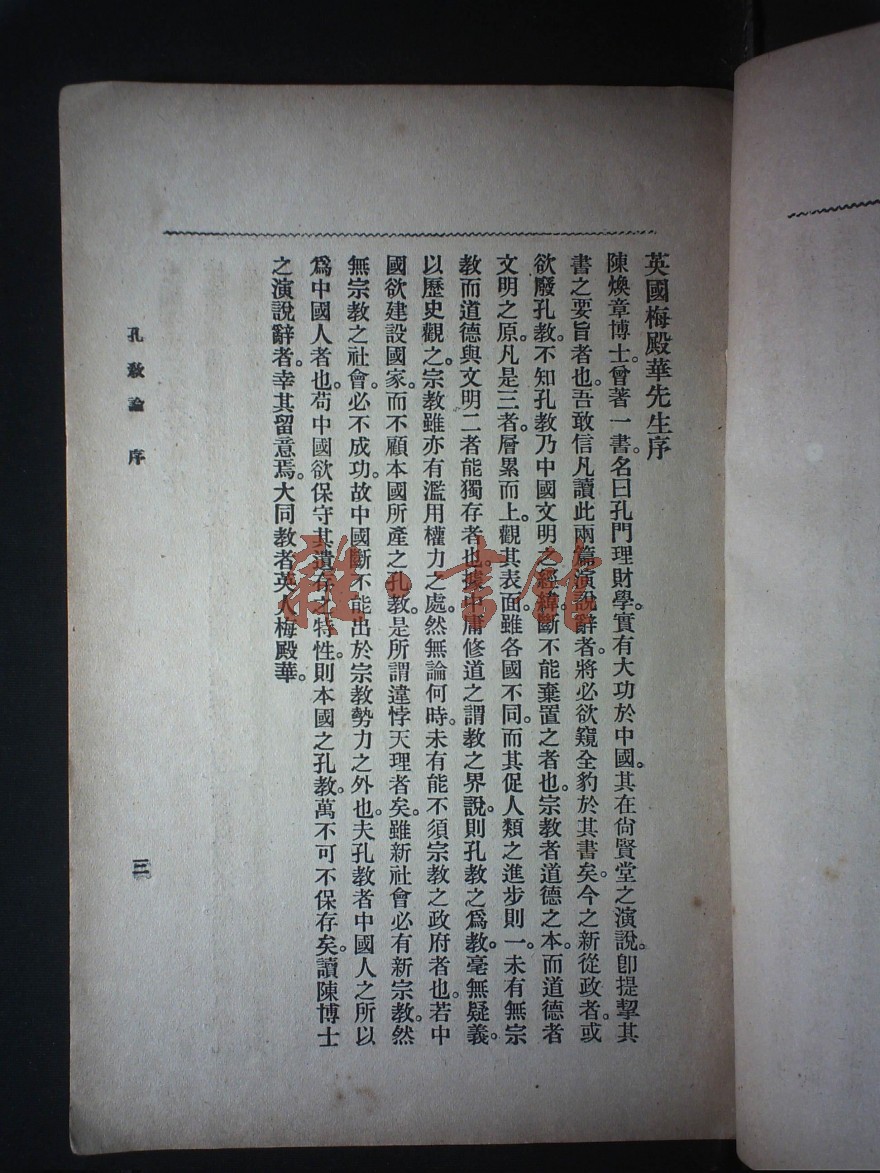 英國梅殿華先生序
陳煥章博士。曾著一書。名曰孔門理財學。實有大功於中國。其在尙賢堂之演說。卽提挈其
書之要旨者也。吾敢信凡讀此兩篇演說辭者。將必欲窺全豹於其書矣。今之新從政者。或
欲廢孔教。不知孔教乃中國文明之經緯。斷不能棄置之者也。宗教者道德之本。而道德者
文明之原。凡是三者。層累而上。觀其表面。雖各國不同。而其促人類之進步則一。未有無宗
教而道德與文明二者能獨存者也。據中庸修道之謂教之界說。則孔教之爲教。毫無疑義。
以歷史觀之。宗教雖亦有濫用權力之處。然無論何時。未有能不須宗教之政府者也。若中
國欲建設國家。而不顧本國所產之孔教。是所謂違悖天理者矣。雖新社會必有新宗教。然
無宗教之社會。必不成功。故中國斷不能出於宗教勢力之外也。夫孔教者中國人之所以
爲中國人者也。苟中國欲保守其遺存之特性。則本國之孔教。萬不可不保存矣。讀陳博士
之演說辭者。幸其留意焉。大同教者英人梅殿華。
孔教論 序
三
雜·書館